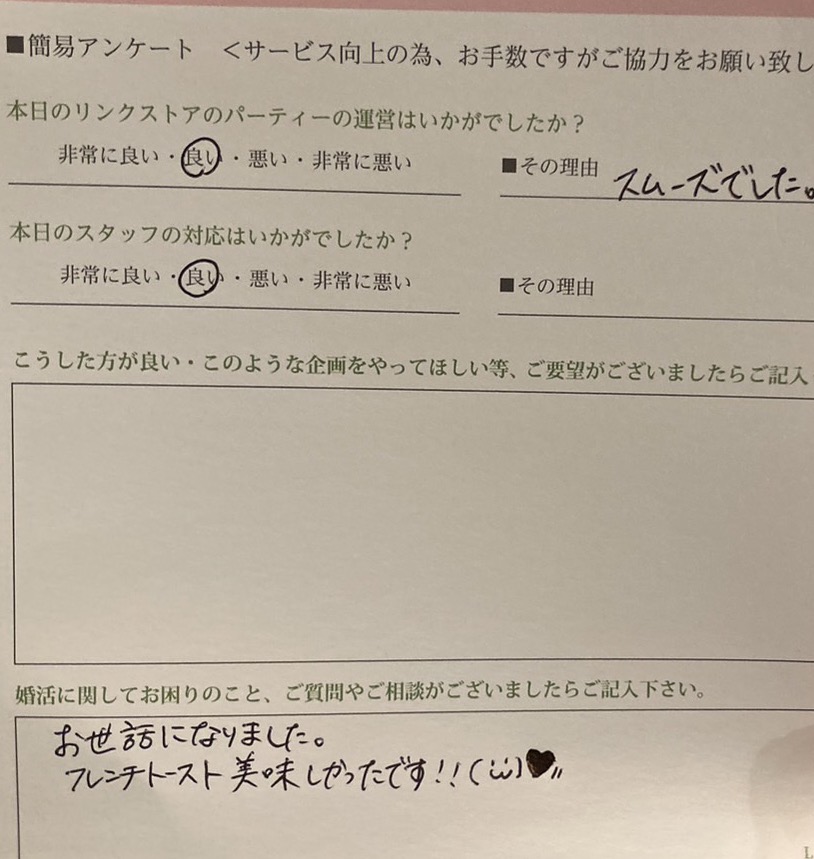 ■簡易アンケート <サービス向上の為、お手数ですがご協力をお願い致し
本日のリンクストアのパーティーの運営はいかがでしたか？
非常に良い・良い・悪い・非常に悪い ■その理由 スムーズでした。
本日のスタッフの対応はいかがでしたか？
非常に良い・良い・悪い・非常に悪い ■その理由
こうした方が良い・このような企画をやってほしい等、ご要望がございましたらご記入
婚活に関してお困りのこと、ご質問やご相談がございましたらご記入下さい。
お世話になりました。
フレンチトースト美味しかったです!!(ü)♥〃
L